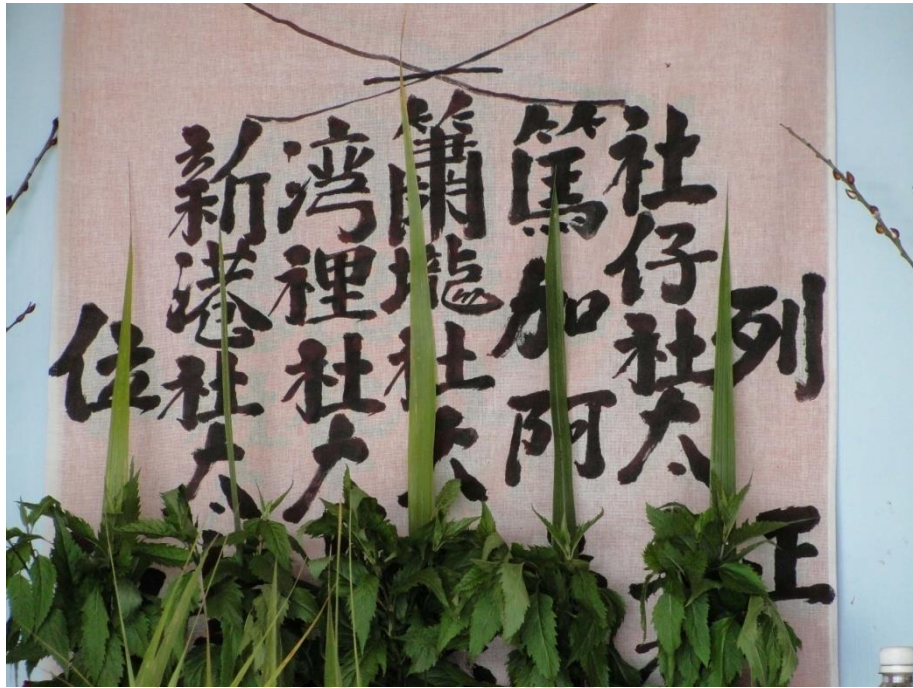 列王
社仔社太
篤加阿
簫壠社太
湾裡社太
新港社太
位